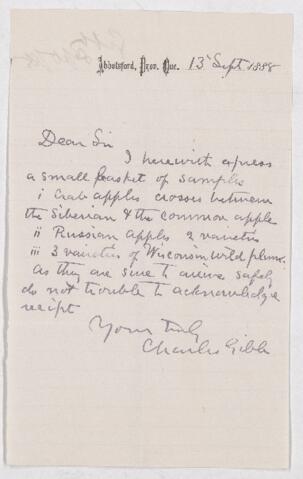 Abbotsford, Prov. Que. 13 Sept 1888
Dear Sir
I herewith express
a small basket of samples
i Crab apples crosses between
the Siberian & the common apple
ii Russian apples 2 varieties
iii 3 varieties of Wisconsin wild plums.
As they are sure to arrive safely
do not trouble to acknowledge
receipt
Yours truly
Charles Gibb